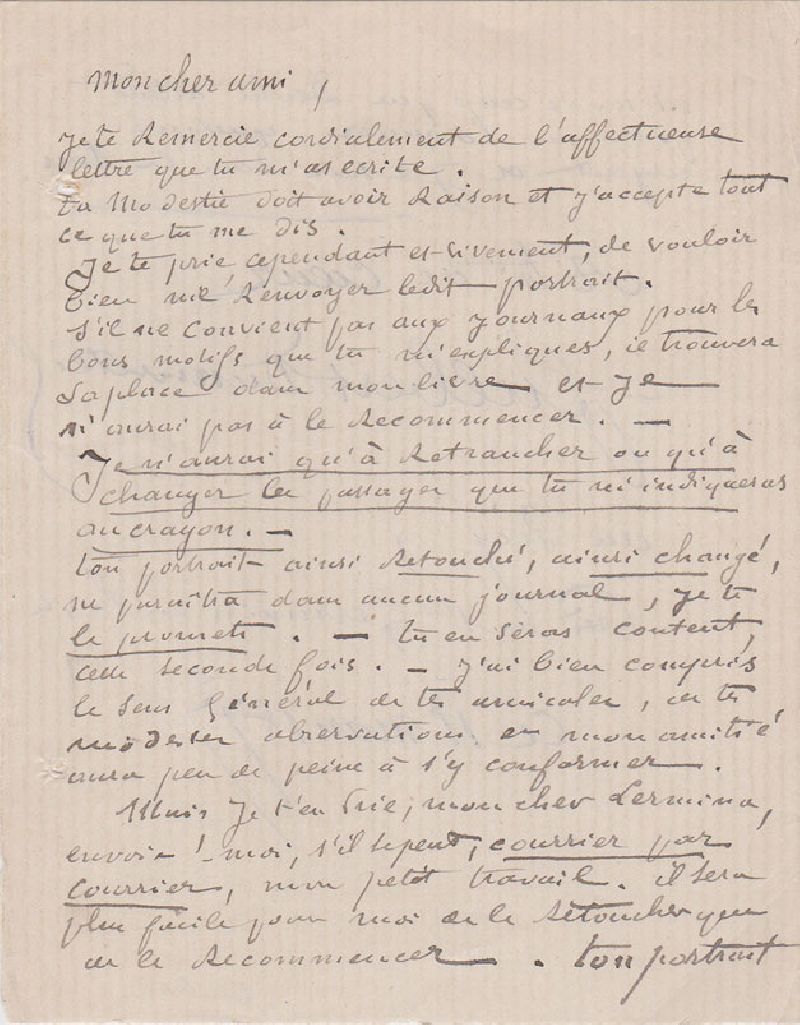 Mon cher ami,
Je te Remercie cordialement de l'affectueuse
lettre que tu m'as ecrite.
ta Modestie doit avoir Raison et j'accepte tout
ce que tu me dis.
Je te prie, cependant et vivement, de vouloir
bien me Renvoyer ledit portrait.
S'il ne convient pas aux journaux pour les
bons motifs que tu m'expliques, il trouvera
sa place dans mon livre et Je
n'aurai pas à le Recommencer. —
Je n'aurai qu'à Retrancher ou qu'à
changer les passages que tu m'indiqueras
au crayon. —
ton portrait ainsi Retouché, ainsi changé,
ne paraîtra dans aucun journal, je te
le promets. — tu en seras content,
cette seconde fois. — J'ai bien compris
le sens Général de tes amicales, de tes
modestes observations et mon amitié
aura peu de peine à s'y conformer.
Mais Je t'en Prie, mon cher Lermina,
envoie-moi, s'il se peut, courrier par
courrier, mon petit travail. il sera
plus facile pour moi de le Retoucher que
de le Recommencer. ton portrait